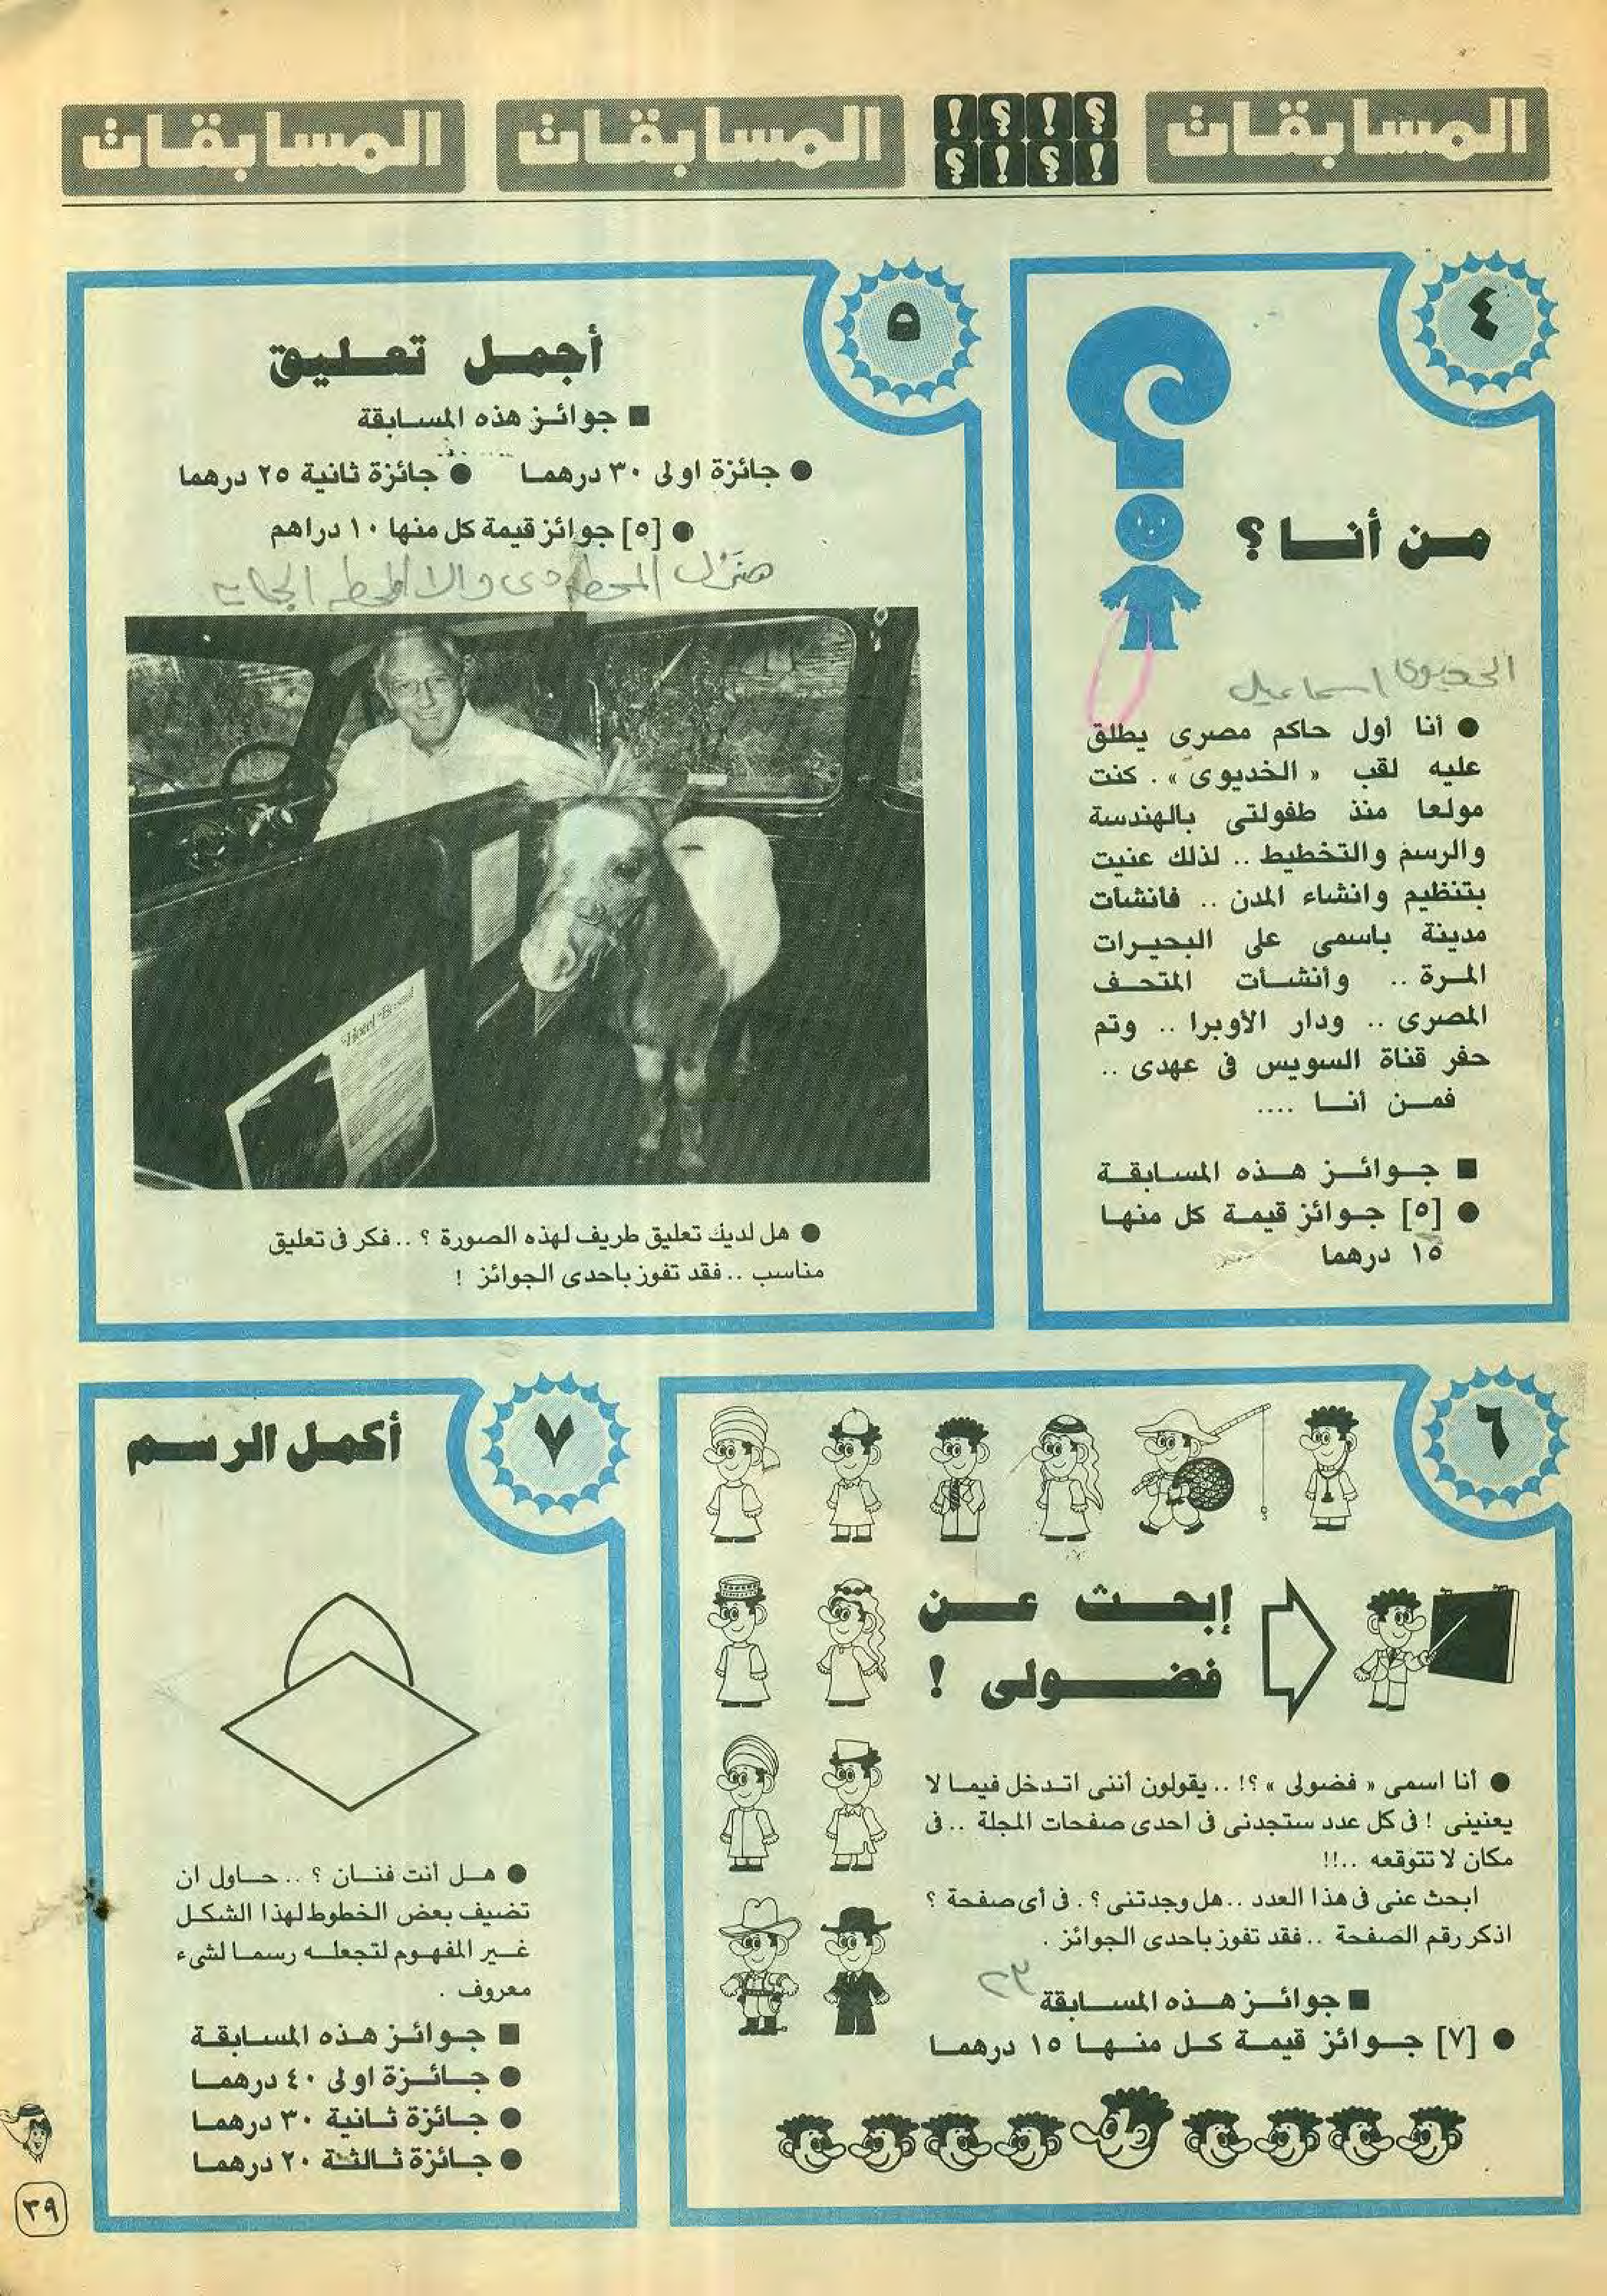 المسابقات
المسابقات
المسابقات
٤
من أنا ؟
الخديوى اسماعيل
● أنا أول حاكم مصرى يطلق
عليه لقب « الخديوى » . كنت
مولعا منذ طفولتى بالهندسة
والرسم والتخطيط .. لذلك عنيت
بتنظيم وانشاء المدن .. فأنشأت
مدينة باسمى على البحيرات
المرة .. وأنشأت المتحف
المصرى .. ودار الأوبرا .. وتم
حفر قناة السويس فى عهدى ..
فمن أنا ....
■ جوائز هذه المسابقة
● [٥] جوائز قيمة كل منها
١٥ درهما
٥
أجمل تعليق
■ جوائز هذه المسابقة
● جائزة اولى ٣٠ درهما ● جائزة ثانية ٢٥ درهما
● [٥] جوائز قيمة كل منها ١٠ دراهم
هتنزل المحطة دى والا المحطة الجايه
● هل لديك تعليق طريف لهذه الصورة ؟ .. فكر فى تعليق
مناسب .. فقد تفوز باحدى الجوائز !
٦
إبحث عن
فضولى !
● أنا اسمى « فضولى » ؟! .. يقولون أننى اتدخل فيما لا
يعنينى ! فى كل عدد ستجدنى فى احدى صفحات المجلة .. فى
مكان لا تتوقعه ..!!
ابحث عنى فى هذا العدد .. هل وجدتنى ؟ . فى أى صفحة ؟
اذكر رقم الصفحة .. فقد تفوز باحدى الجوائز .
٢٣
■ جوائز هذه المسابقة
● [٧] جوائز قيمة كل منها ١٥ درهما
٧
أكمل الرسم
● هل أنت فنان ؟ .. حاول ان
تضيف بعض الخطوط لهذا الشكل
غير المفهوم لتجعله رسما لشىء
معروف .
■ جوائز هذه المسابقة
● جائزة اولى ٤٠ درهما
● جائزة ثانية ٣٠ درهما
● جائزة ثالثة ٢٠ درهما
٣٩